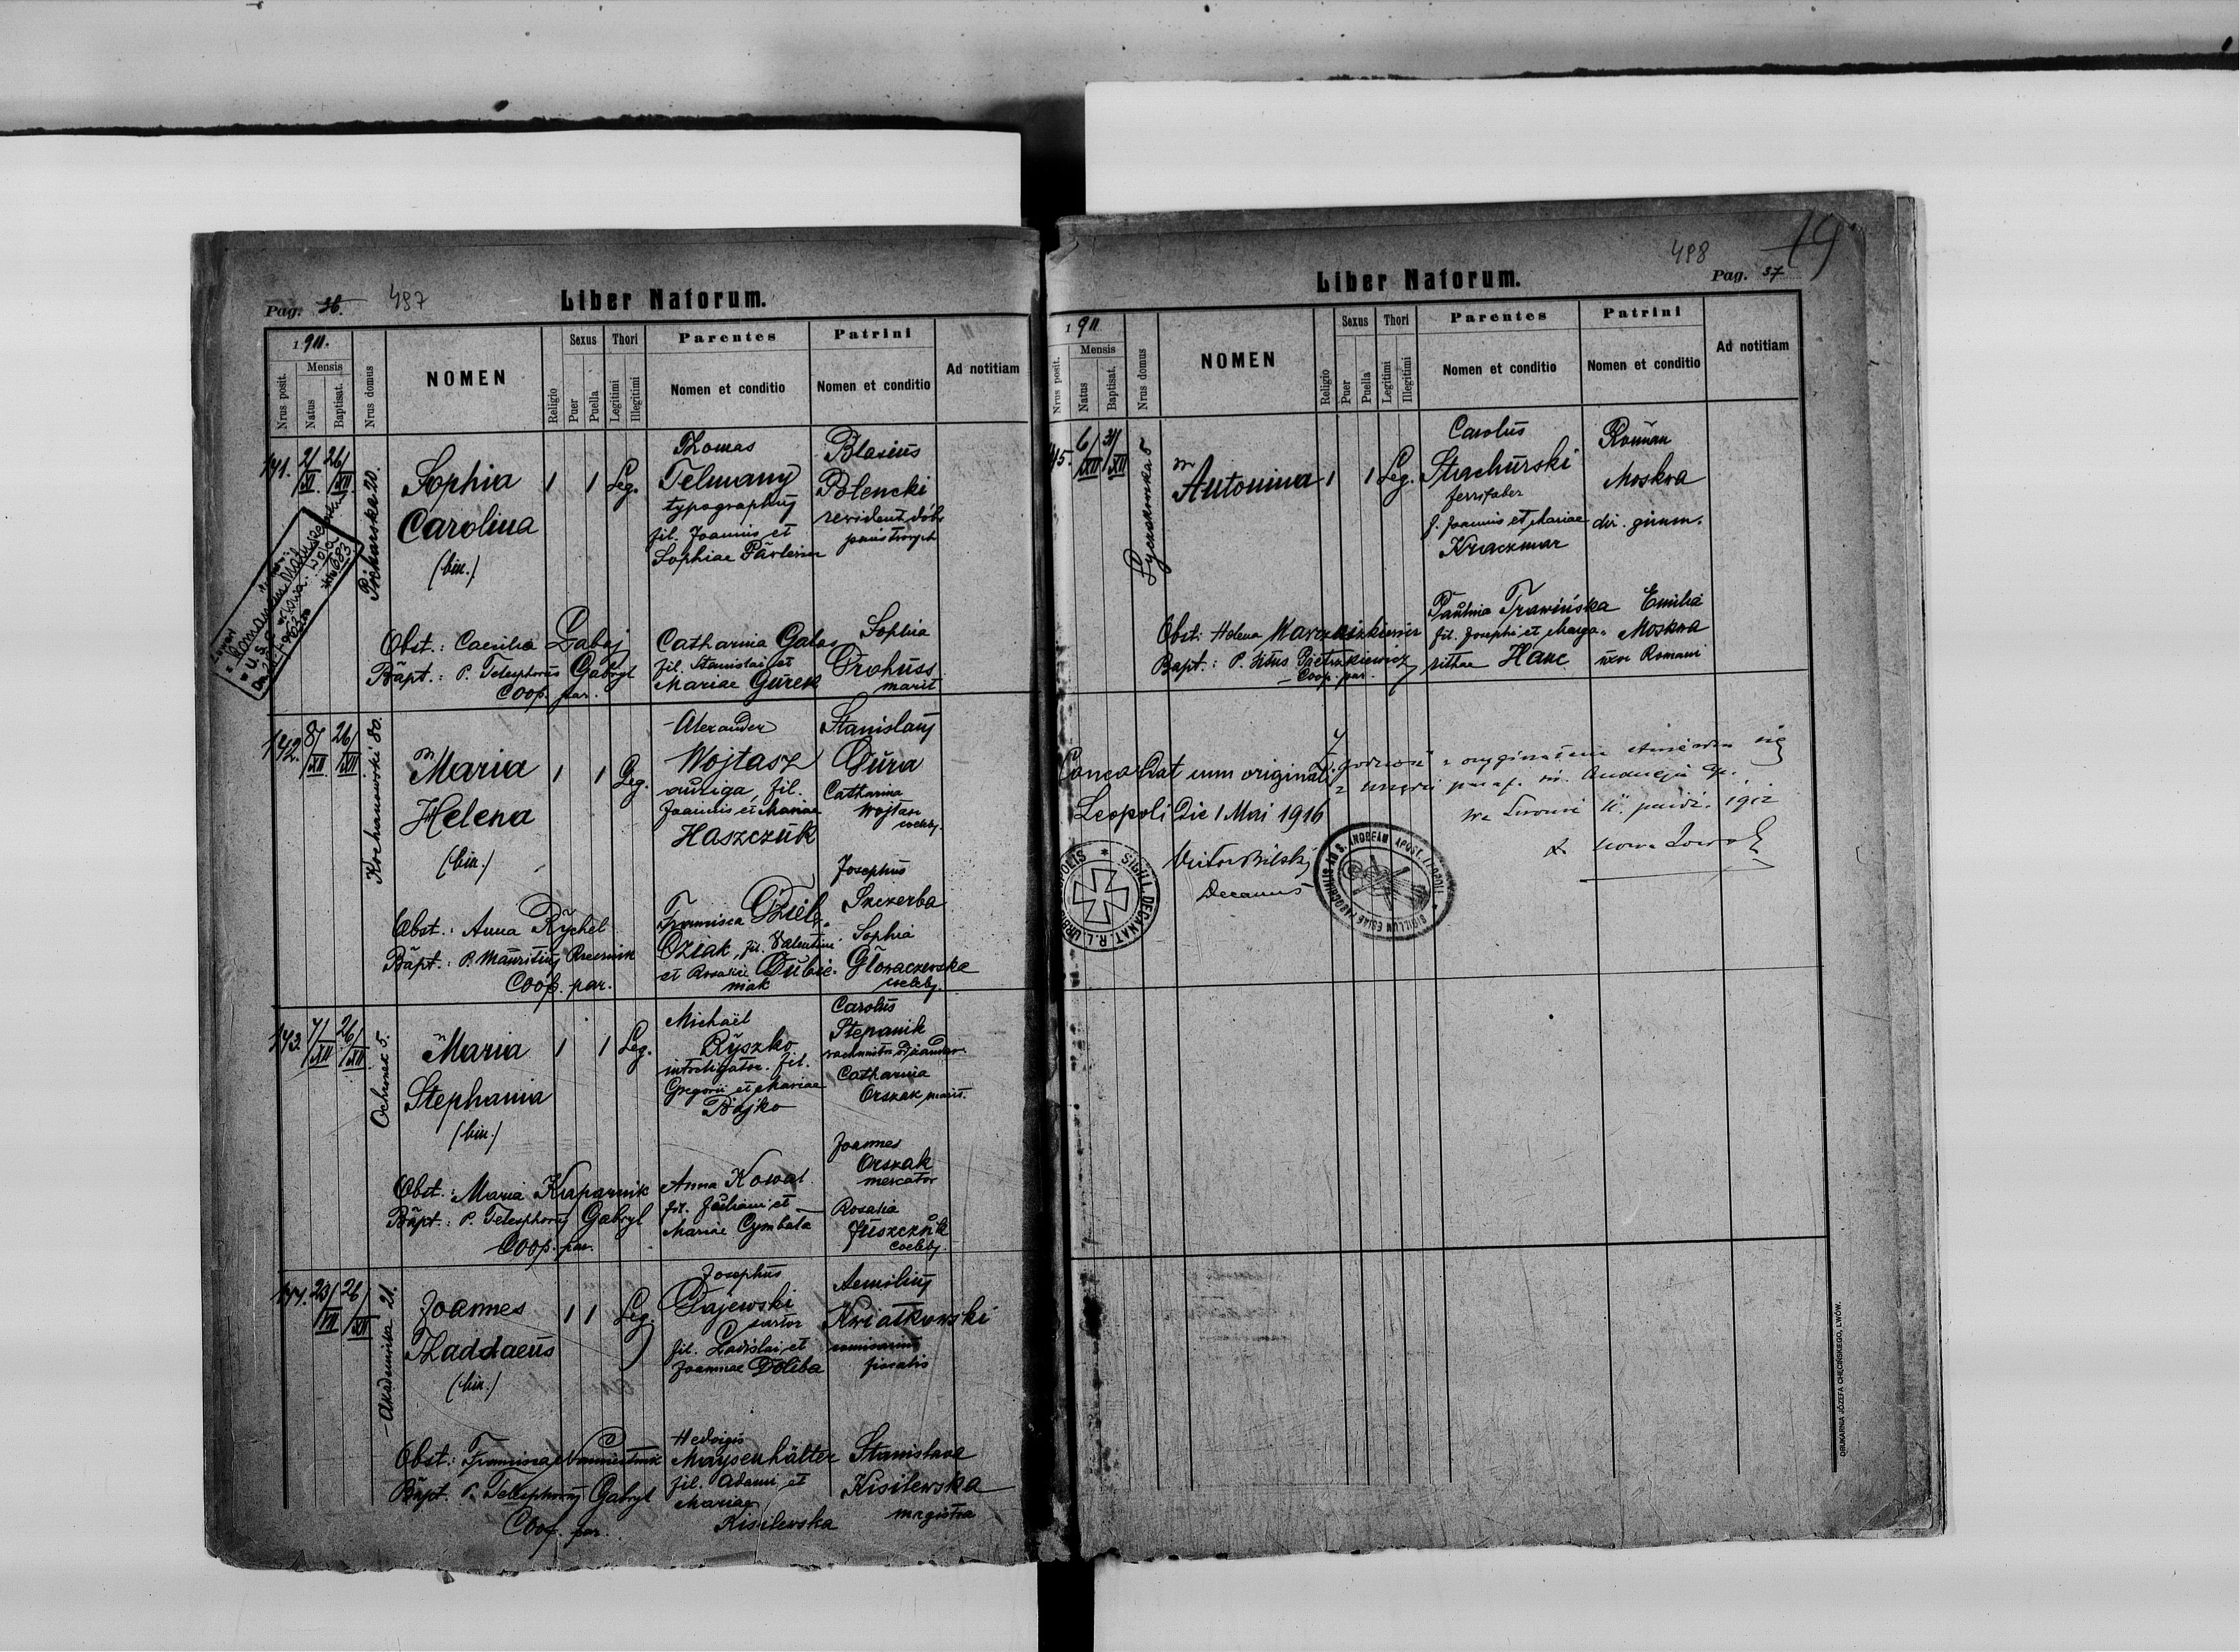 Pag. 36. 487
Liber Natorum.
1911.
Nrus posit.
Mensis
Natus
Baptisat.
Nrus domus
NOMEN
Religio
Sexus
Puer
Puella
Thori
Legitimi
Illegitimi
Parentes
Nomen et conditio
Patrini
Nomen et conditio
Ad notitiam
141.
2/XI.
26/XII.
Piekarska 20.
Sophia
Carolina
(bin.)
1 1 Leg.
Thomas
Telmany
typographus
fil. Joannis et
Sophiae
Blasius
Polencki
rewident dóbr
państwowych
Obst.: Caecilia Gabaj
Bapt.: P. Telesphorus Gabryl
Coop. par.
Catharina Galas
fil. Stanislai et
Mariae Gurek
Sophia
Drohuss
marit
142.
8/XII
26/XII
Kochanowski 80.
Maria
Helena
(bin.)
1 1 Leg.
Alexander
Wojtasz
auriga, fil.
Joannis et Mariae
Haszczuk
Stanislaus
Dura
Catharina
Wojtasz
coelebs.
Josephus
Szczerba
Sophia
Głowaczewska
coelebs.
Obst.: Anna Rychel
Bapt.: P. Mauritius
Coop. par.
Francisca Dziek
Oziak, fil. Valentini
et Rosaliae Dubie-
niak
143.
7/XII
26/XII
Ochronek 5.
Maria
Stephania
(bin.)
1 1 Leg.
Michaël
Ryszko
introligator. fil.
Gregorii et Mariae
Bojko
Carolus
Stepanik
Catharina
Orszak marit.
Joannes
Orszak
mercator
Rosalia
Juszczuk
coelebs.
Obst.: Maria Kuparnik
Bapt.: P. Telesphorus Gabryl
Coop. par.
Anna Kowal
fil. Juliani et
Mariae Cymbala
144.
23/VII
26/XII
Akademicka 21.
Joannes
Thaddaeus
(bin.)
1 1 Leg.
Josephus
Gajewski
sartor
fil. Ladislai et
Joannae Doliba
Aemilius
Kwiatkowski
comisarius
fiscalis
Obst.: Francisca
Bapt. P. Telesphorus Gabryl
Coop. par.
Hedvigis
Maysenhälter
fil. Adami et
Mariae
Kisilewska
Stanislava
Kisilewska
magistra
488 19
Liber Natorum.
Pag. 37
1911
Nrus posit.
Mensis
Natus
Baptisat.
Nrus domus
NOMEN
Religio
Sexus
Puer
Puella
Thori
Legitimi
Illegitimi
Parentes
Nomen et conditio
Patrini
Nomen et conditio
Ad notitiam
145.
6/XII
31/XII
Łyczakowska 5
Antonina
1 1 Leg.
Carolus
Stachurski
ferrifaber
f. Joannis et Mariae
Kraczmar
Roman
Moskwa
dir. gimn.
Obst: Helena
Bapt.: P. Titus Pietrzkiewicz
Coop. par.
Paulina Trawińska
fil. Josephi et Marga-
rithae Hanc
Emilia
Moskwa
uxor Romani
Concordat cum originali.
Leopoli die 1 Mai 1916
Victor Bilski
Decanus
Zgodność z oryginałem stwierdza się
we Lwowie 1912
SIGILL. DECANAT. R. L. URBIS LEOPOLIS
DRUKARNIA JÓZEFA CHĘCIŃSKIEGO, LWÓW.